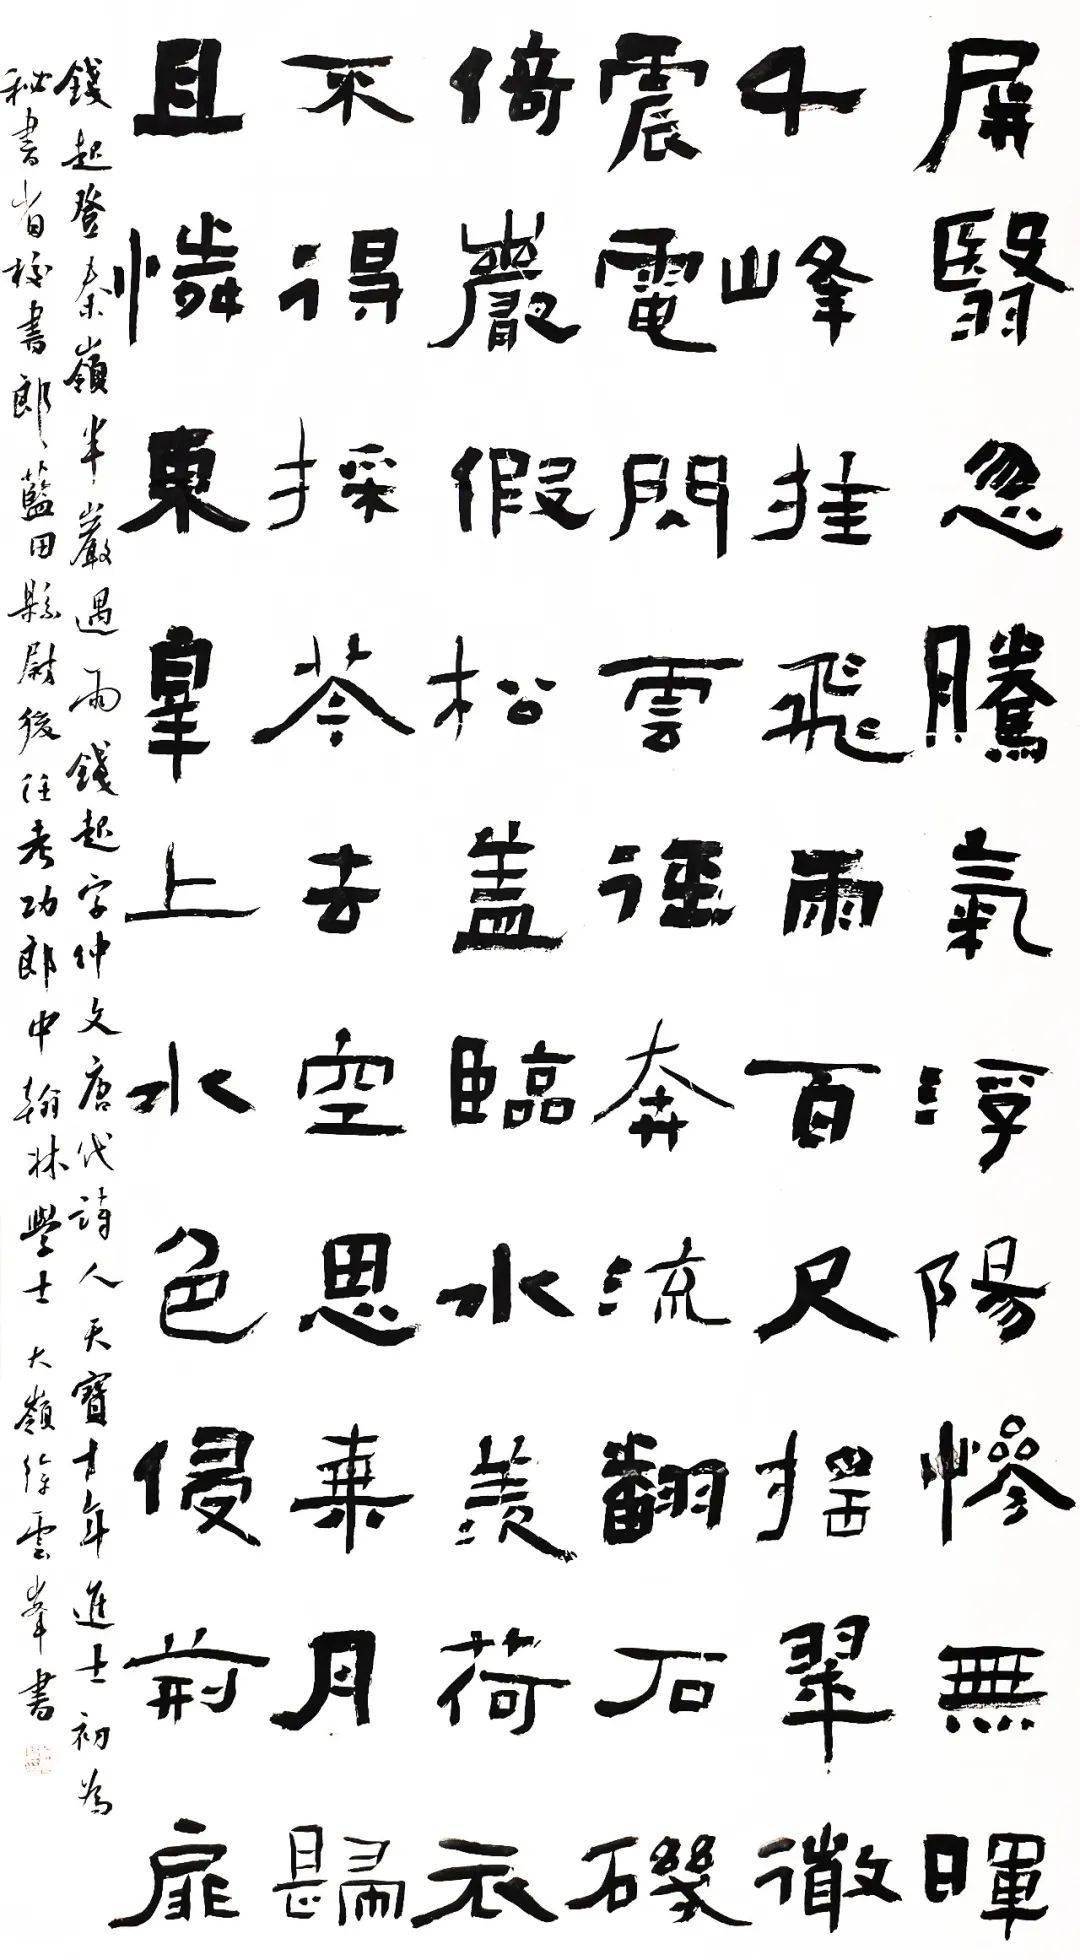 屏翳忽騰氣浮陽慘無暉
千峰挂飛雨百尺搖翠微
震電閃雲徑奔流翻石磯
倚巖假松盖臨水羨荷衣
不得採苓去空思乗月歸
且憐東皋上水色侵荆扉
錢起登秦嶺半巖遇雨錢起字仲文唐代詩人天寶十年進士初為
秘書省校書郎藍田縣尉後任考功郎中翰林學士大嶺徐雲峯書